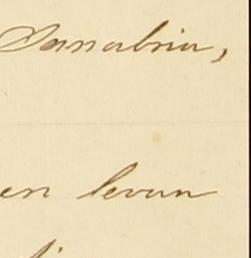 Sanabria,
en levan